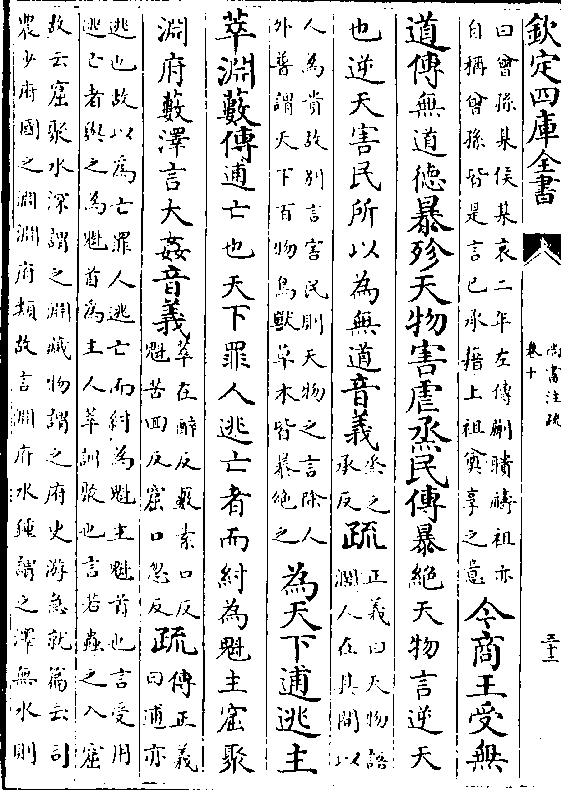 欽定四庫全書
尚書注疏
卷十
曰曾孫某侯某哀二年左傳蒯聵禱祖亦
自稱曾孫皆是言已承籍上祖奠享之意
今商王受無
道傳無道德暴殄天物害虐烝民傳暴絶天物言逆天
也逆天害民所以為無道音義
烝之
承反
疏
正義曰天物語
濶人在其間以
人為貴故别言害民則天物之言除人
外普謂天下百物鳥獸草木皆暴絶之
為天下逋逃主
萃淵藪傳逋亡也天下罪人逃亡者而紂為魁主窟聚
淵府藪澤言大姦音義
萃在醉反藪素口反
魁苦回反窟口忽反
疏
傳正義
曰逋亦
逃也故以為亡罪人逃亡而紂為魁主魁首也言受用
逃亡者與之為魁首為主人萃訓聚也言若蟲之入窟
故云窟聚水深謂之淵藏物謂之府史游急就篇云司
農少府國之淵淵府類故言淵府水鍾謂之澤無水則